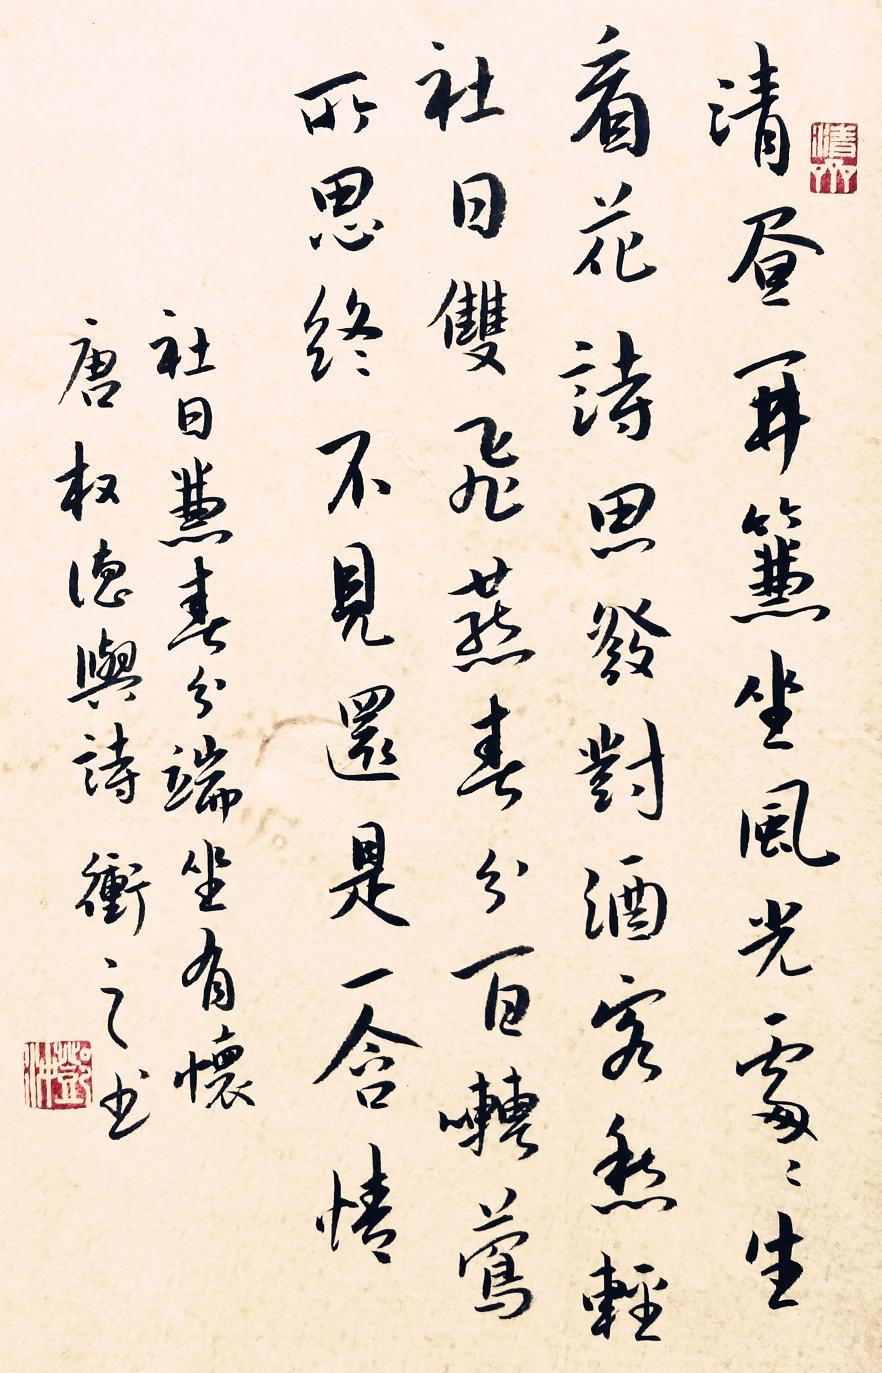 清昼開簾坐風光處〻生
看花詩思發對酒客愁輕
社日雙飛燕春分百囀鶯
所思終不見還是一含情
社日兼春分端坐有懷
唐权德輿詩衝之书